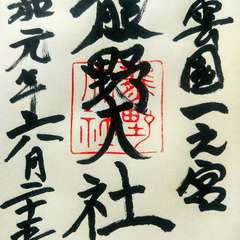 雲國一之宮
熊野大社
和元年六月二十五
熊野大社